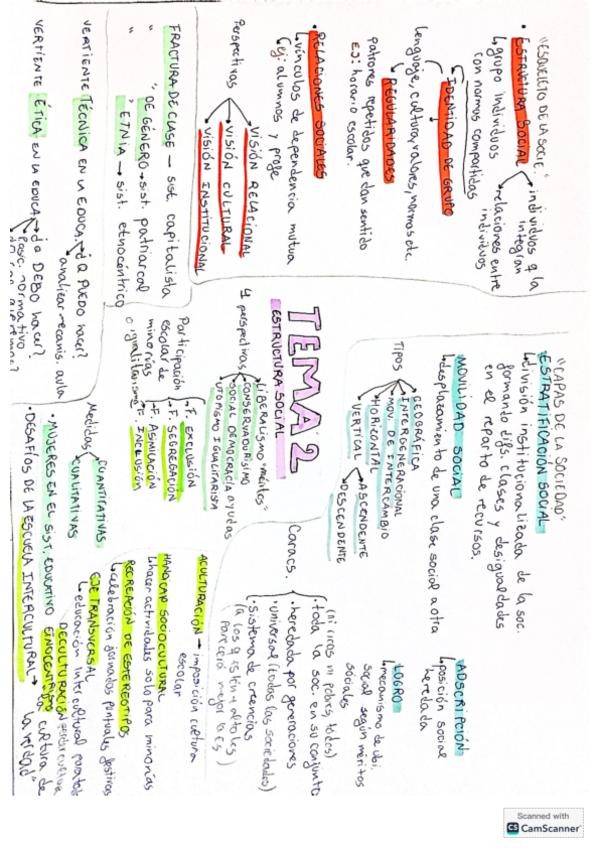 "ESQUELETO DE LA SOCIE."
• ESTRUCTURA SOCIAL
individuos q la
integran
relaciones entre
individuos
grupo individuos
con normas compartidas
IDENTIDAD DE GRUPO
lenguaje, cultura, valores, normas etc.
REGULARIDADES
patrones repetidos que dan sentido
EJ: horario escolar.
• RELACIONES SOCIALES
vínculos de dependencia mutua
ej: alumnos y profe
Perspectivas
VISIÓN RELACIONAL
VISIÓN CULTURAL
VISIÓN INSTITUCIONAL
FRACTURA DE CLASE — sist. capitalista
" " DE GÉNERO → sist. patriarcal
" " ETNIA → sist. etnocéntrico
VERTIENTE TÉCNICA EN LA EDUCA. → ¿Q PUEDO hacer?
analizar mecanis. aula
VERTIENTE ÉTICA EN LA EDUCA. → ¿Q DEBO hacer?
TEMA 2
ESTRUCTURA SOCIAL
4 perspectivas
LIBERALISMO
CONSERVADURISMO
SOCIAL DEMOCRACIA ayudas
UTOPISMO IGUALITARISTA
Participación
escolar de
minorías
o igualitarismo
F. EXCLUSIÓN
F. SEGREGACIÓN
F. ASIMILACIÓN
F. INCLUSIÓN
Medidas
CUANTITATIVAS
CUALITATIVAS
• MUJERES EN EL SIST. EDUCATIVO
• DESAFÍOS DE LA ESCUELA INTERCULTURAL →
"CAPAS DE LA SOCIEDAD"
• ESTRATIFICACIÓN SOCIAL
división institucionalizada de la soc.
formando difs. clases y desigualdades
en el reparto de recursos.
MOVILIDAD SOCIAL
desplazamiento de una clase social a otra
Tipos
GEOGRÁFICA
INTERGENERACIONAL
MOV. DE INTERCAMBIO
HORIZONTAL
VERTICAL
ASCENDENTE
DESCENDENTE
ADSCRIPCIÓN
posición social
heredada
LOGRO
mecanismo de ubi.
social según méritos
sociales
Caracs.
(ni ricos ni pobres, todos)
• toda la soc. en su conjunto
• heredada por generaciones
• universal (todas las sociedades)
• sistema de creencias
ACULTURACIÓN → imposición cultura
escolar
HANDICAP SOCIOCULTURAL
hacer actividades solo para minorías
RECREACIÓN DE ESTEREOTIPOS
celebración jornadas puntuales festivas
EJE TRANSVERSAL
educación intercultural para todos
DECULTURACIÓN perder cultura
ETNOCENTRISMO
la verdad"
Scanned with
CS CamScanner